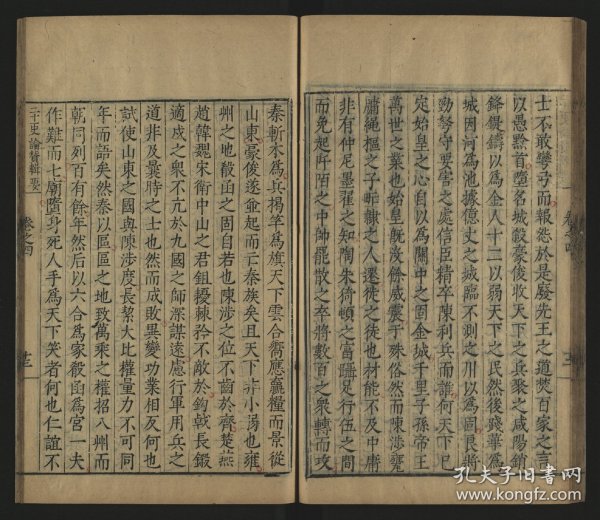 士不敢彎弓而報怨於是廢先王之道焚百家之言
以愚黔首墮名城殺豪俊收天下之兵聚之咸陽銷
鋒鍉鑄以爲金人十二以弱天下之民然後踐華爲
城因河爲池據億丈之城臨不測之川以爲固良將
勁弩守要害之處信臣精卒陳利兵而誰何天下已
定始皇之心自以爲關中之固金城千里子孫帝王
萬世之業也始皇旣沒餘威震于殊俗然而陳涉甕
牖繩樞之子甿隸之人遷徙之徒也材能不及中庸
非有仲尼墨翟之知陶朱猗頓之富躡足行伍之間
而免起阡陌之中帥罷散之卒將數百之衆轉而攻
秦斬木爲兵揭竿爲旗天下雲合嚮應贏糧而景從
山東豪俊遂並起而亡秦族矣且天下非小弱也雍
州之地殽函之固自若也陳涉之位不齒於齊楚燕
趙韓魏宋衛中山之君鉏耰棘矜不敵於鉤戟長鎩
適戍之衆不亢於九國之師深謀遠慮行軍用兵之
道非及曩時之士也然而成敗異變功業相反何也
試使山東之國與陳涉度長絜大比權量力不可同
年而語矣然秦以區區之地致萬乘之權招八州而
朝同列百有餘年然后以六合爲家殽函爲宮一夫
作難而七廟墮身死人手爲天下笑者何也仁誼不
二十一史論贊輯要 卷之四 十三
孔夫子旧书网
www.kongfz.com